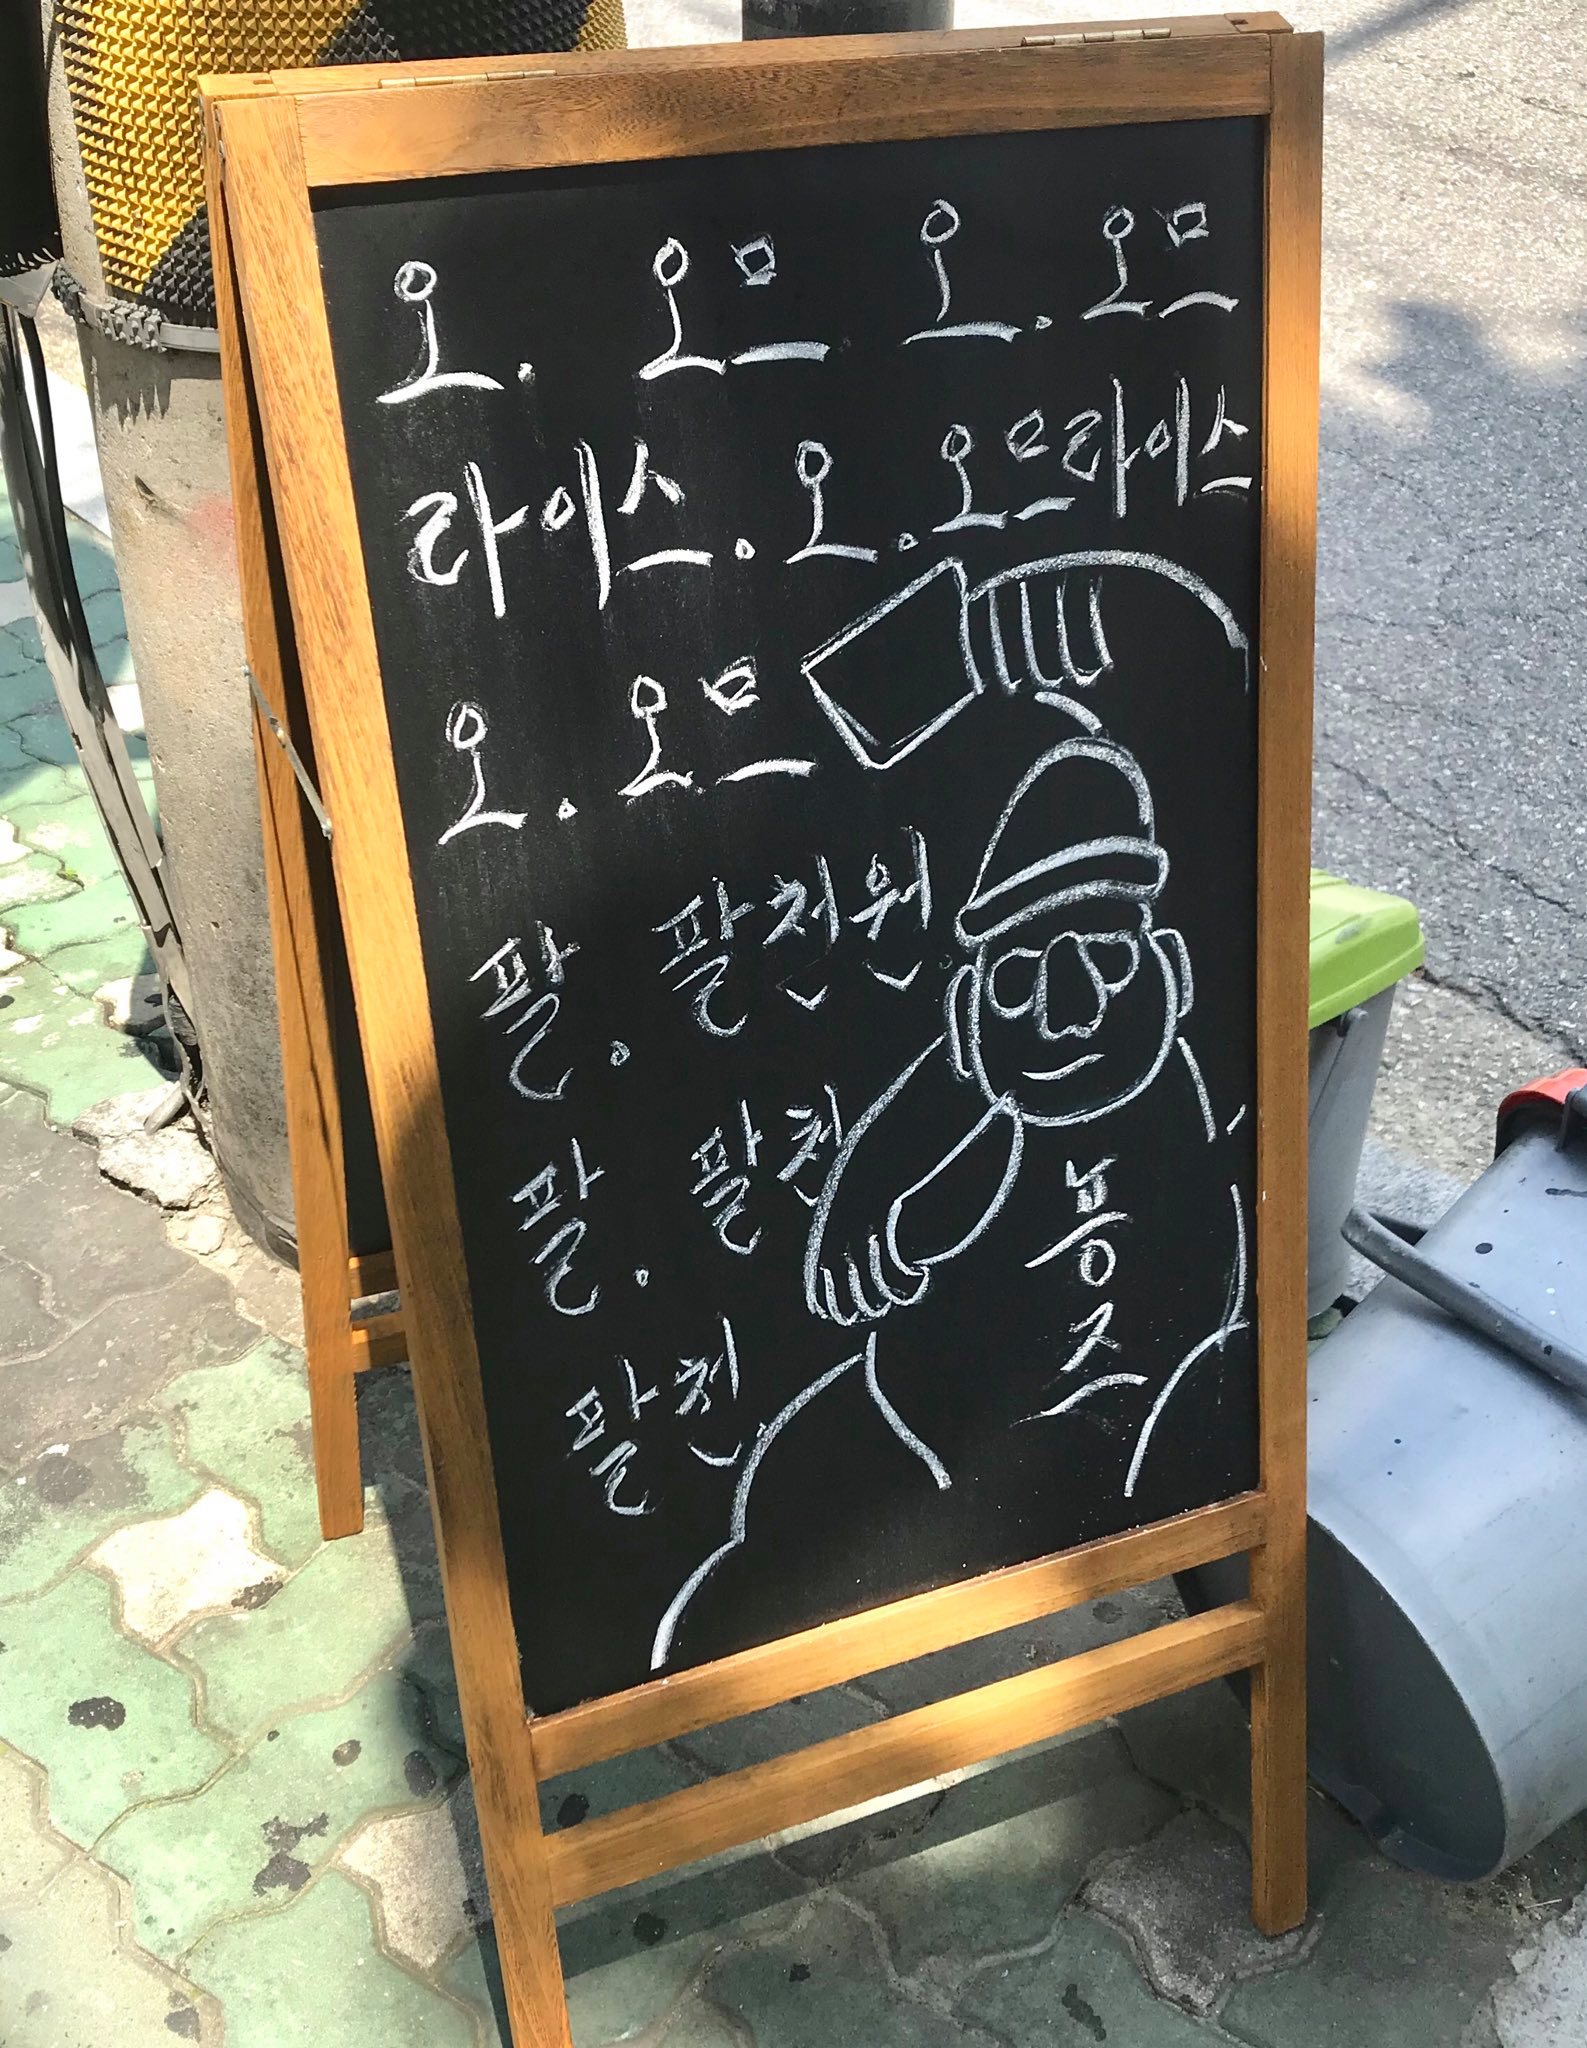 오. 오므 오. 오므
라이스. 오. 오므라이스
오. 오므
팔. 팔천원
팔. 팔천
팔천
뭉
즈